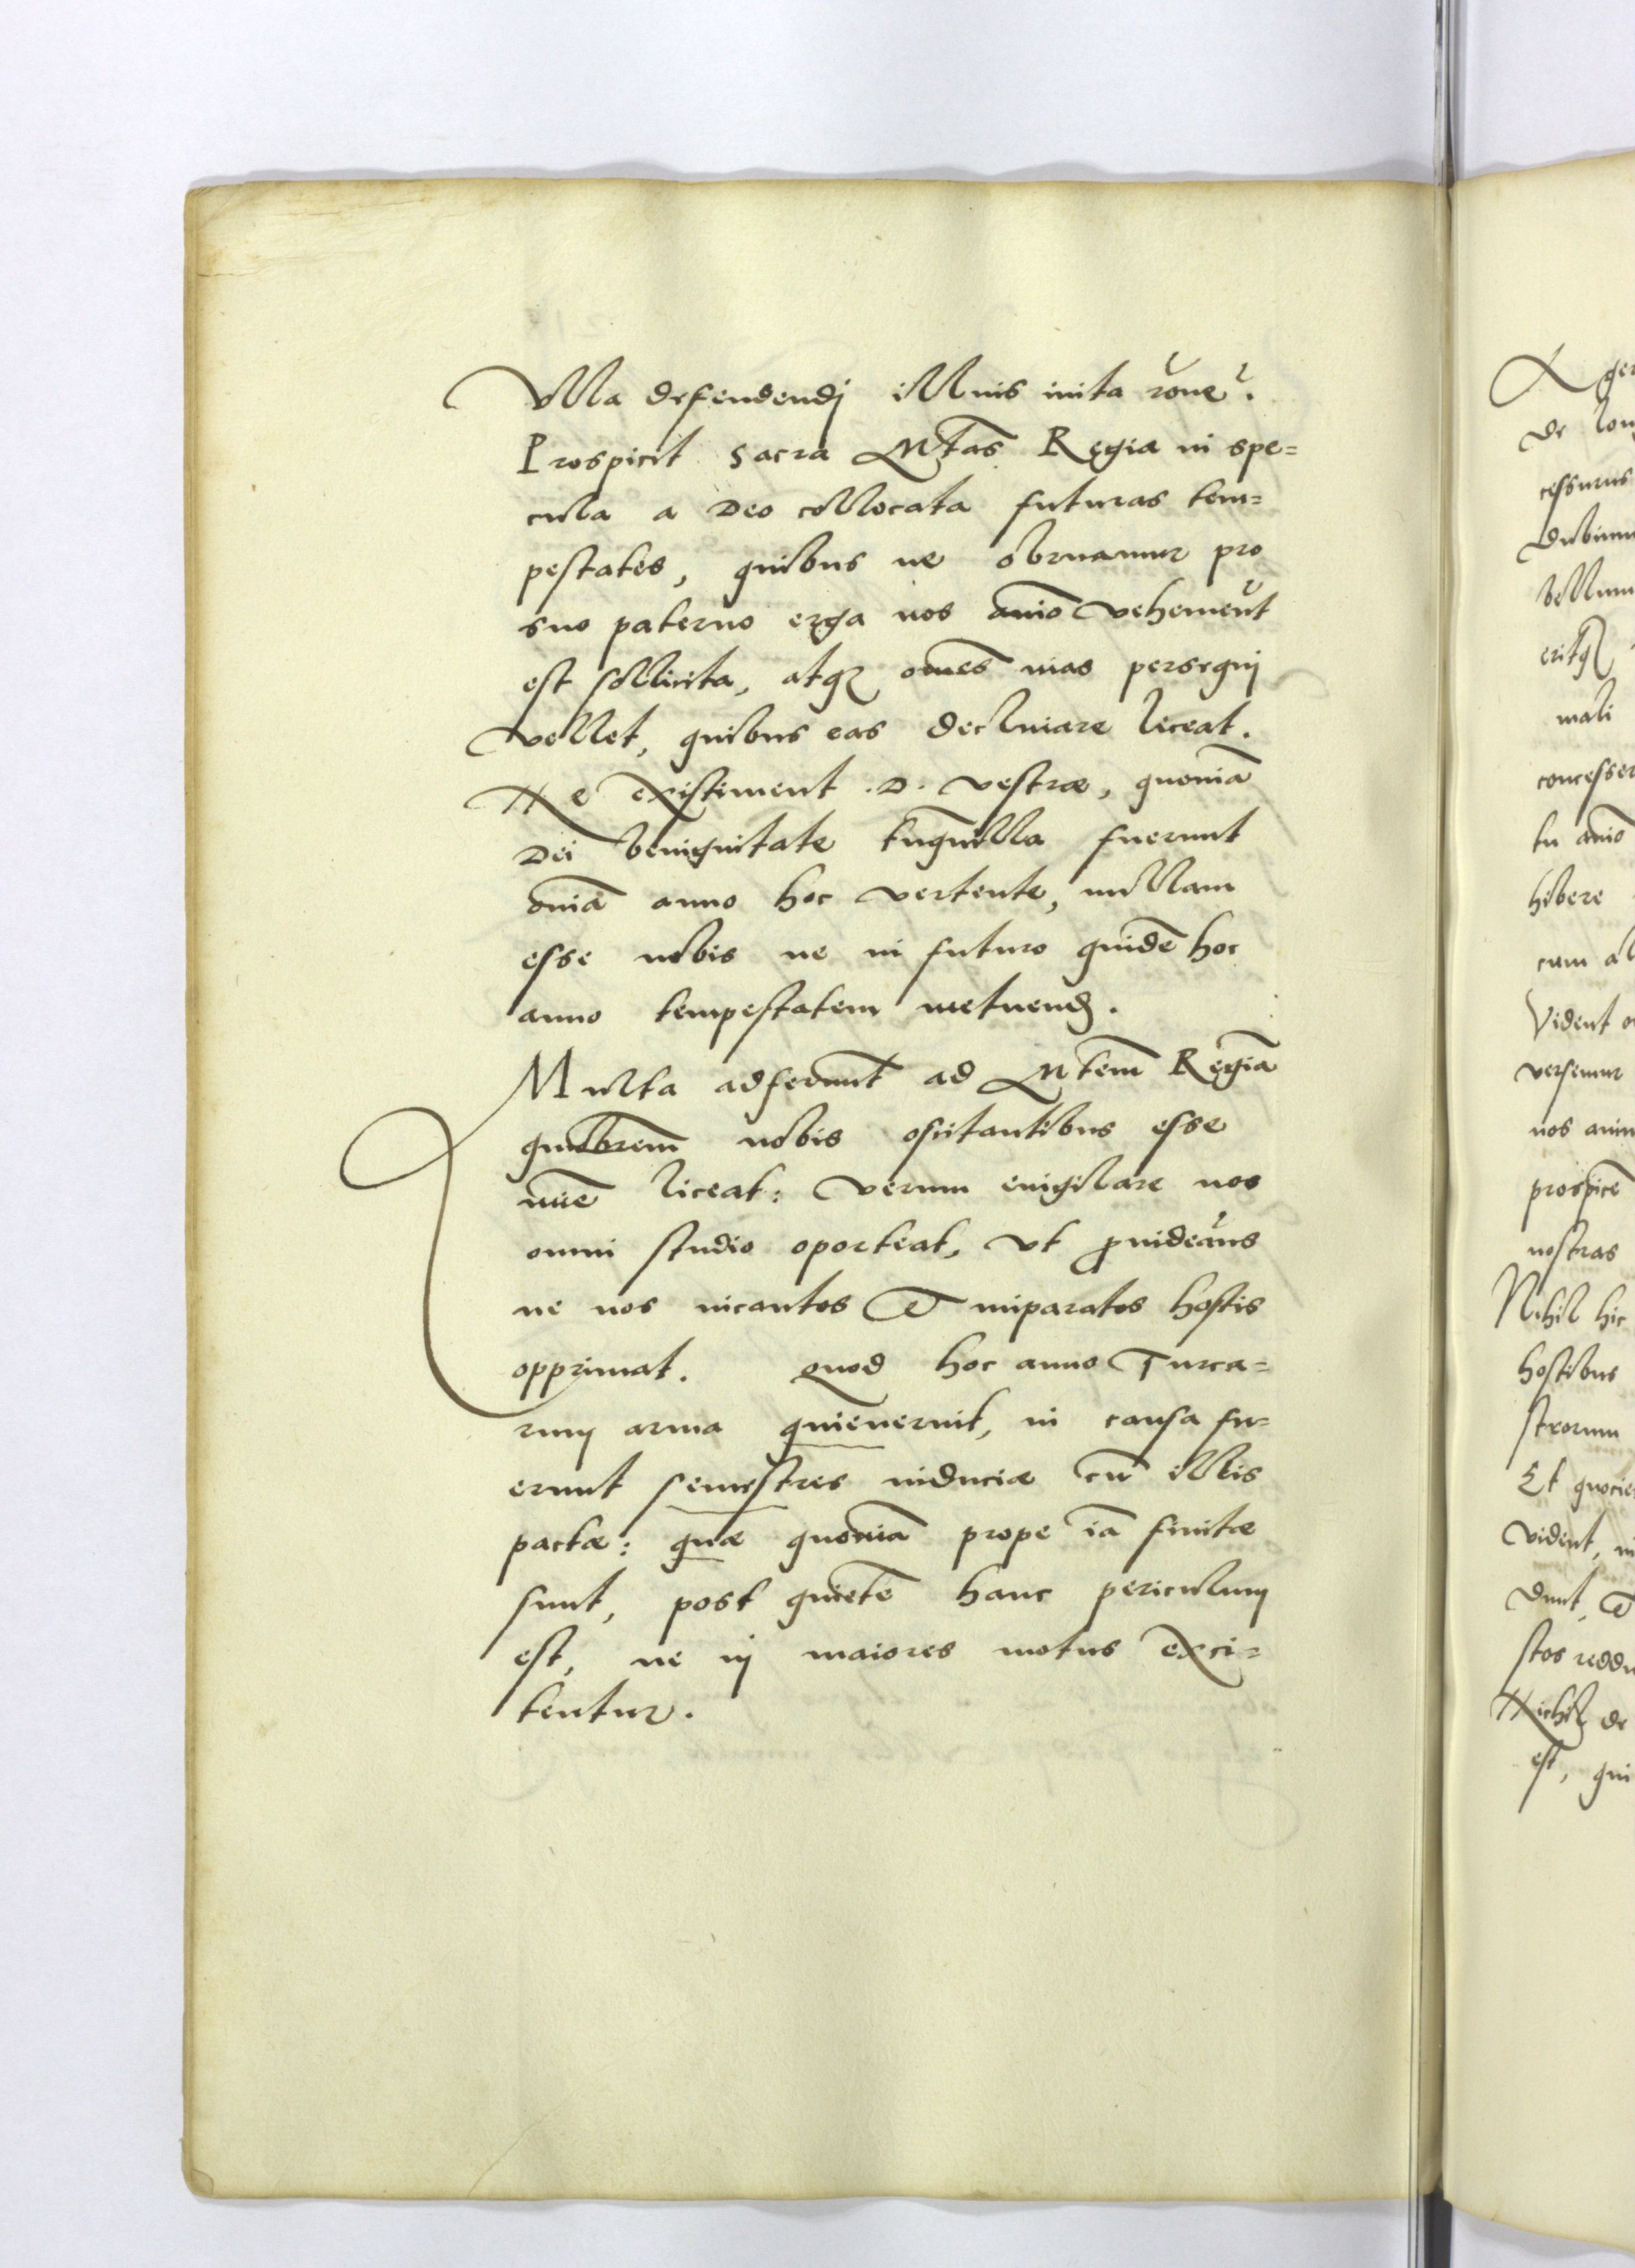 Vlla defendendj illius inita rone?
Prospicit Sacra Mtas Regia in spe=
cula a Deo collocata futuras tem=
pestates, quibus ne obruamur pro
suo paterno erga nos aīo vehement
est sollicita, atq omēs uias persequj
vellet, quibus eas declinare liceat.
Ne existiment .D. vestræ, quoniā
Dei benignitate tnquilla fuerunt
oīa anno hoc vertente, nullam
esse nobis ne in futuro quidē hoc
anno tempestatem metuend.
Multa adferunt ad Mtem Regiā
quābrem nobis oscitantibus esse
nūc liceat: verum euigilare nos
omni studio oporteat, vt puideaus
ne nos incautos & imparatos hostis
opprimat. Quod hoc anno Turca=
rum arma quieuerint, in causa fu=
erunt semestres induciæ cū illis
pactæ: quæ quoniā prope iā finitæ
sunt, post quietē hanc periculum
est, ne ij maiores motus exci=
tentur.
de
cessurus
Dubium
bellum
eritq
mali
hibere
cum
Vident
versemur
nos
nostras
Nihil hic
hostibus
strorum
Et
vident,
dunt, &
stos
Nichil de
est, qui